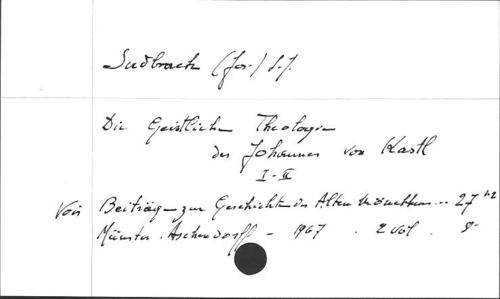 Sudbrack (Jos.) S.J.
Die Geistliche Theologie
des Johannes von Kastl
I-II
Voir Beiträge zur Geschichte des Alten Mönchtums... 27 1-2
Münster. Aschendorff - 1967. 2 vol. 8°